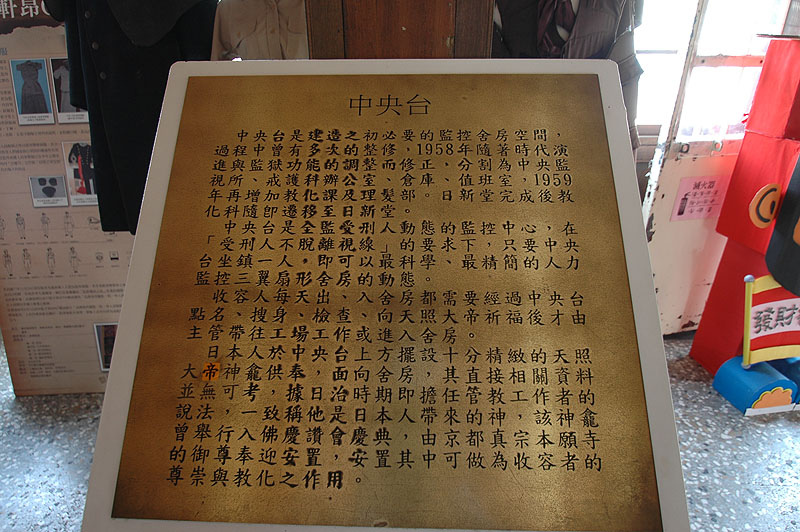 中央台
中央台是建造之初必要的監控舍房空間，
過程中曾有多次的整修，1958年隨著時代演
進與監獄功能的調整而修正，分割為中央監
視所、戒護科辦公室、倉庫、值班室，1959
年再增加教化課及理髮部。日新堂完成後教
化科隨即遷移至日新堂。
中央台是全監受刑人動態的監控中心，在
「受刑人不脫離視線」的要求下，只要中央
台坐鎮一人。即可以最科學、最精簡的人力
監控三翼扇形舍房的動態。
收容人每天出、入舍房都需要經過中央台
點名、搜身、檢查、向天照大帝祈福後才由
主管帶往工場工作或進入舍房。
日本人於中央台上方擺設十分精緻的天照
大帝神龕供奉，面向舍房，其直接相關資料
並無可考，據日治時期擔任管教工作者的
說法，一致稱他是日本人帶來的神，該神龕
曾舉行入佛慶讚會慶典，由京都真宗本願寺
的御尊奉迎安置，安置其中可做為收容者的
尊崇與教化之作用。
滅火器
發財
軒昂